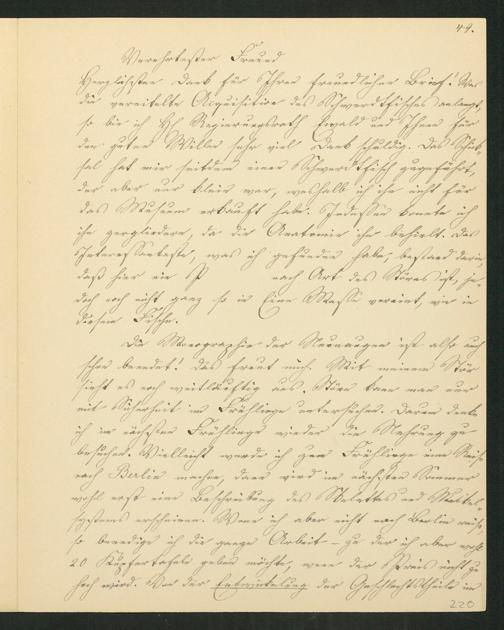 49.
Verehrtester Freund
Herzlichsten Dank für Ihren freundlichen Brief! Was
die vereitelte Acquisition des Schwerdtfisches anlangt,
so bin ich H. Regierungsrath Ewald und Ihnen für
den guten Willen sehr viel Dank schuldig. Das Schick-
sal hat mir seitdem einen Schwerdtfisch zugeführt,
der aber nur klein war, weshalb ich ihn nicht für
das Museum erkauft habe. Indessen konnte ich
ihn zergliedern, da die Anatomie ihn behielt. Das
Interessanteste, was ich gefunden habe, bestand darin,
daß hier ein P nach Art des Störes ist, je-
doch noch nicht ganz so in Eine Masse vereint, wie in
diesem Fische.
Die Monographie der Neunaugen ist also auch
schon beendet! Das freut mich. Mit meinem Stör
sieht es noch weitläuftig aus. Störe kann man nur
mit Sicherheit im Frühlinge untersuchen. Darum denke
ich im nächsten Frühlinge wieder die Nehrung zu
besuchen. Vielleicht werde ich zum Frühlinge eine Reise
nach Berlin machen, dann wird im nächsten Sommer
wohl erst eine Beschreibung des Skelettes und Muskel-
systems erscheinen. Wenn ich aber nicht nach Berlin reise,
so beendige ich die ganze Arbeit – zu der ich aber wohl
20 Kupfertafeln geben möchte, wenn der Preis nicht zu
hoch wird. Von der Entwickelung der Geschlechtstheile im
220